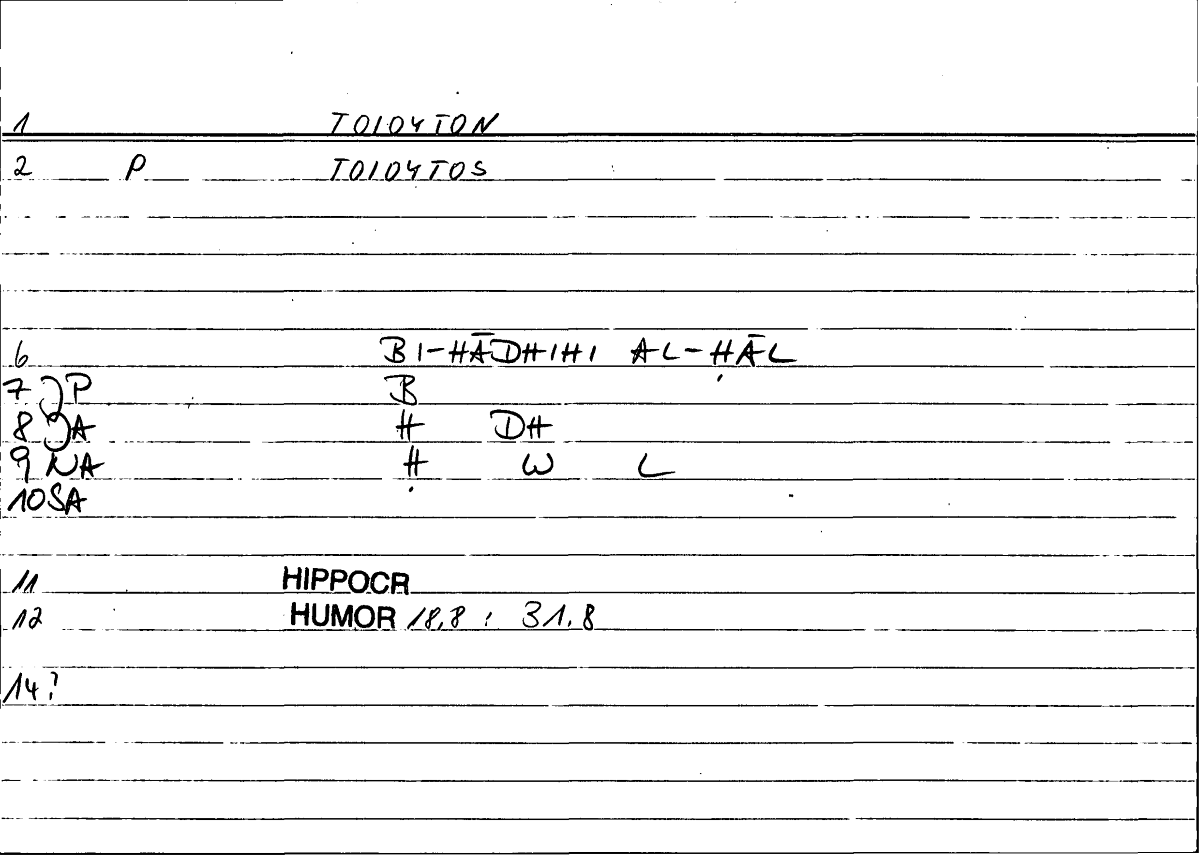 1 TOIOYTON
2 P TOIOYTOS
6 BI-HĀDHIHI AL-ḤĀL
7 P B
8 A H DH
9 NA Ḥ W L
10 SA
11 HIPPOCR
12 HUMOR 18,8 : 31,8
14?